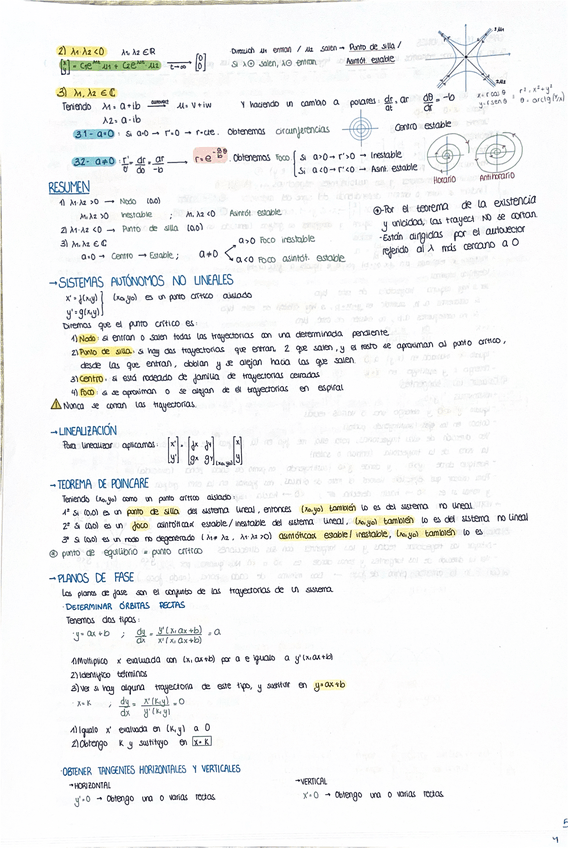 2) λ1·λ2 <0 λ1, λ2 ∈ ℝ Dirección μ1 entran / μ2 salen → Punto de silla /
[x y] = C1e^λ1t μ1 + C2e^λ2t μ2 → t→∞ [0 0] Si λ⊕ salen, λ⊖ entran Asint. estable
3) λ1, λ2 ∈ ℂ
Teniendo λ1 = a+ib → μ = v+iw Y haciendo un cambio a polares: dr/dt = ar dθ/dt = -b
x = r cos θ ; r² = x²+y²
y = r sen θ θ = arctg(y/x)
λ2 = a-ib
3.1 - a=0 : Si a=0 → r'=0 → r=cte. Obtenemos circunferencias Centro estable
3.2- a≠0 : r'/θ' = dr/dθ = ar/-b → r=e^-a/b θ . Obtenemos Foco { Si a>0 → r'>0 → Inestable
Si a<0 → r'<0 → Asint. estable
Horario Antihorario
RESUMEN
1) λ1·λ2 >0 → Nodo (0,0)
λ1, λ2 >0 Inestable ; λ1, λ2 <0 Asintót. estable
2) λ1·λ2 <0 → Punto de silla (0,0)
3) λ1, λ2 ∈ ℂ
a=0 → Centro → Estable ; a≠0
a>0 Foco inestable
a<0 Foco asintót. estable
⊛ -Por el teorema de la existencia
y unicidad, las trayect. NO se cortan.
-Están dirigidas por el autovector
referido al λ más cercano a 0
→ SISTEMAS AUTÓNOMOS NO LINEALES
x' = f(x,y) } (x0,y0) es un punto crítico aislado
y' = g(x,y)
Diremos que el punto crítico es:
1) Nodo: si entran o salen todas las trayectorias con una determinada pendiente.
2) Punto de silla: si hay dos trayectorias que entran, 2 que salen, y el resto se aproximan al punto crítico,
desde las que entran, doblan y se alejan hacia las que salen.
3) Centro: si está rodeado de familia de trayectorias cerradas
4) Foco: si se aproximan o se alejan de él trayectorias en espiral
⚠ Nunca se cortan las trayectorias.
→ LINEALIZACIÓN
Para linealizar aplicamos: [x' y'] = [fx fy gx gy](x0,y0) [x y]
→ TEOREMA DE POINCARE
Teniendo (x0,y0) como un punto crítico aislado:
1º Si (0,0) es un punto de silla del sistema lineal, entonces (x0,y0) también lo es del sistema no lineal.
2º Si (0,0) es un foco asintóticam. estable/inestable del sistema lineal, (x0,y0) también lo es del sistema no lineal
3º Si (0,0) es un nodo no degenerado (λ1≠λ2, λ1·λ2>0) asintóticam. estable/inestable, (x0,y0) también lo es
⊛ punto de equilibrio = punto crítico
→ PLANOS DE FASE
Los planos de fase son el conjunto de las trayectorias de un sistema.
· DETERMINAR ÓRBITAS RECTAS
Tenemos dos tipos:
· y = ax+b ; dy/dx = y'(x, ax+b)/x'(x, ax+b) = a
1) Multiplico x' evaluada con (x, ax+b) por a e igualo a y'(x, ax+b)
2) Identifico términos
3) Ver si hay alguna trayectoria de este tipo, y sustituir en y=ax+b
· x=K ; dy/dx = x'(K,y)/y'(K,y) = 0
1) Igualo x' evaluada en (K,y) a 0
2) Obtengo K y sustituyo en x=K
· OBTENER TANGENTES HORIZONTALES Y VERTICALES
→ HORIZONTAL → VERTICAL
y'=0 → Obtengo una o varias rectas. x'=0 → Obtengo una o varias rectas.